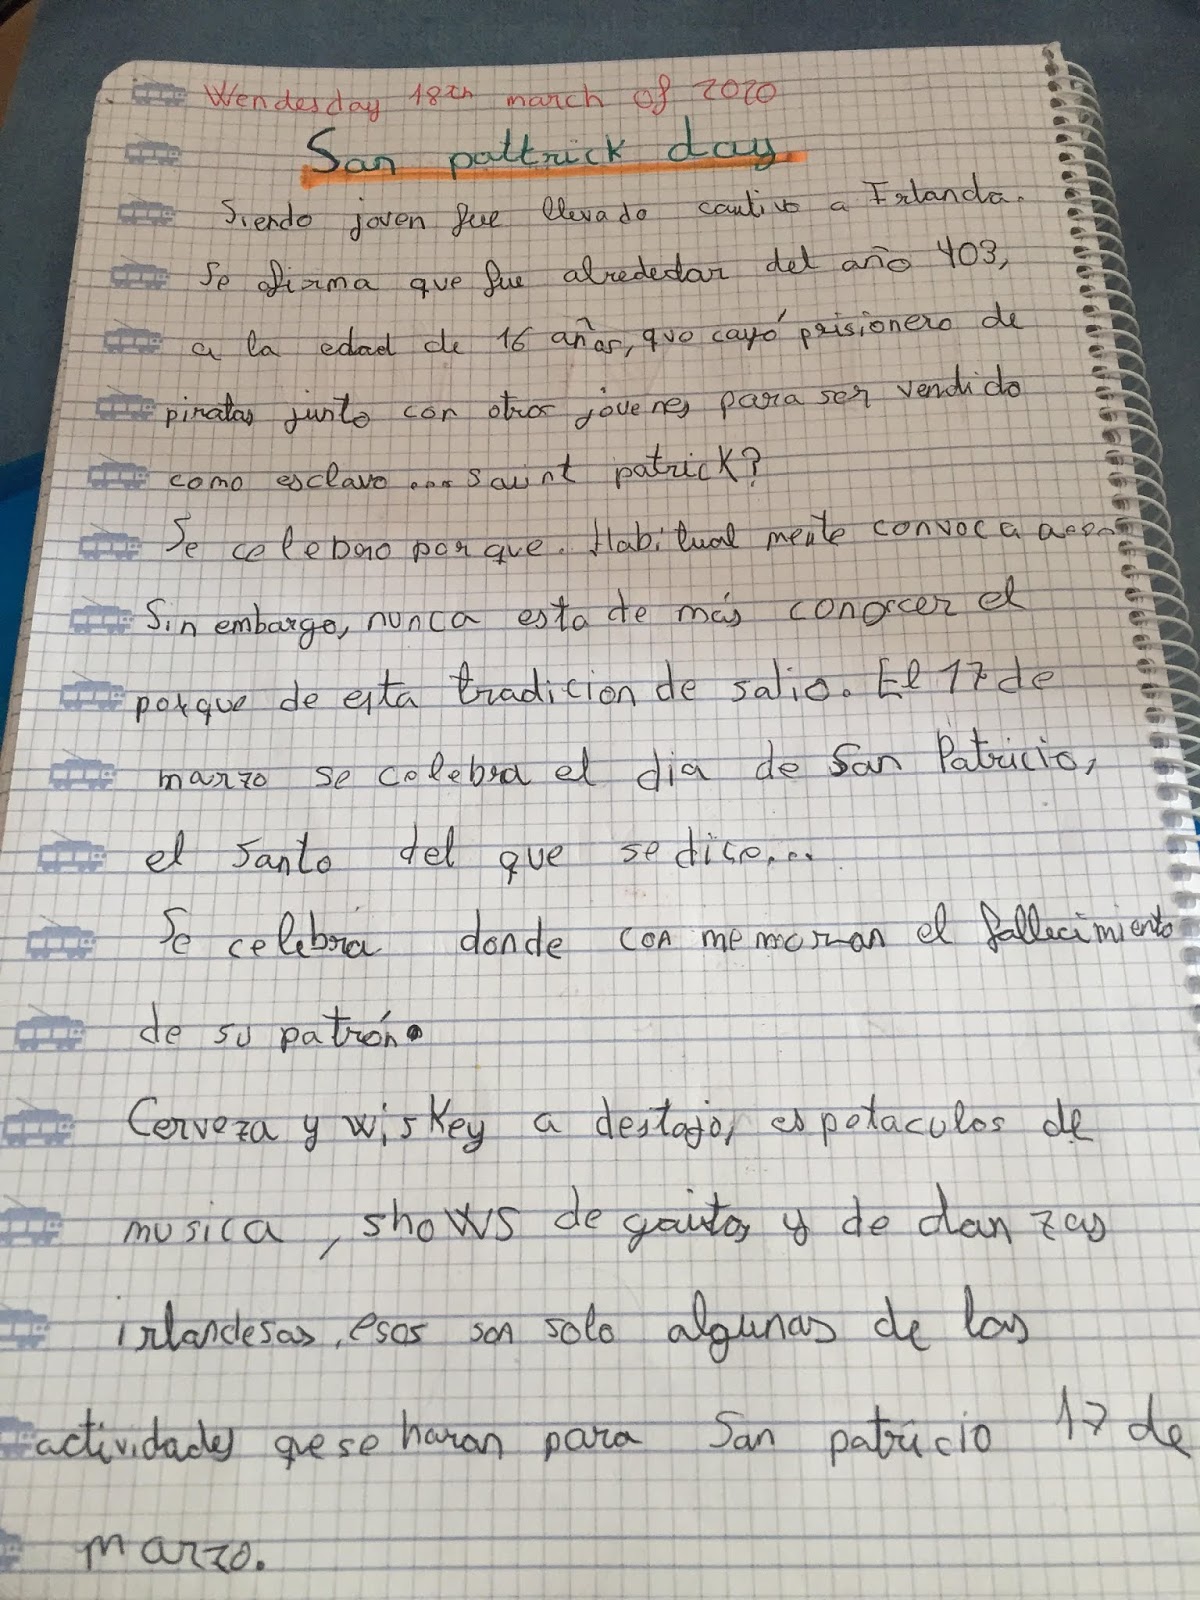 Wendesday 18th march of 2020
San pattrick day
Siendo joven fue llevado cautivo a Irlanda.
Se afirma que fue alrededar del año 403,
a la edad de 16 años, que cayó prisionero de
piratas junto con otros jóvenes para ser vendido
como esclavo... saint patrick?
Se celebra porque. Habitualmente convoca a
Sin embargo, nunca esta de más conocer el
porque de esta tradicion de salio. El 17 de
marzo se celebra el dia de San Patricio,
el santo del que se dice...
Se celebra donde conmemoran el fallecimiento
de su patrón.
Cerveza y wiskey a destajo, espetaculos de
musica, shows de gaitas y de danzas
irlandesas, esas son solo algunas de las
actividades que se haran para San patricio 17 de
marzo.